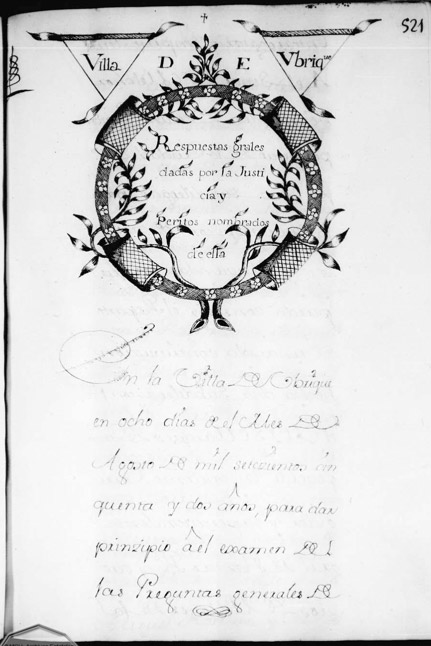 521
Villa DE Vbrique
Respuestas grales
dadas por la Justi
cia y
Peritos nombrados
de ella
En la Villa De Vbrique
en ocho días del Mes De
Agosto De mil setecientos cin
quenta y dos años, para dar
prinzipio al examen De
las Preguntas generales De